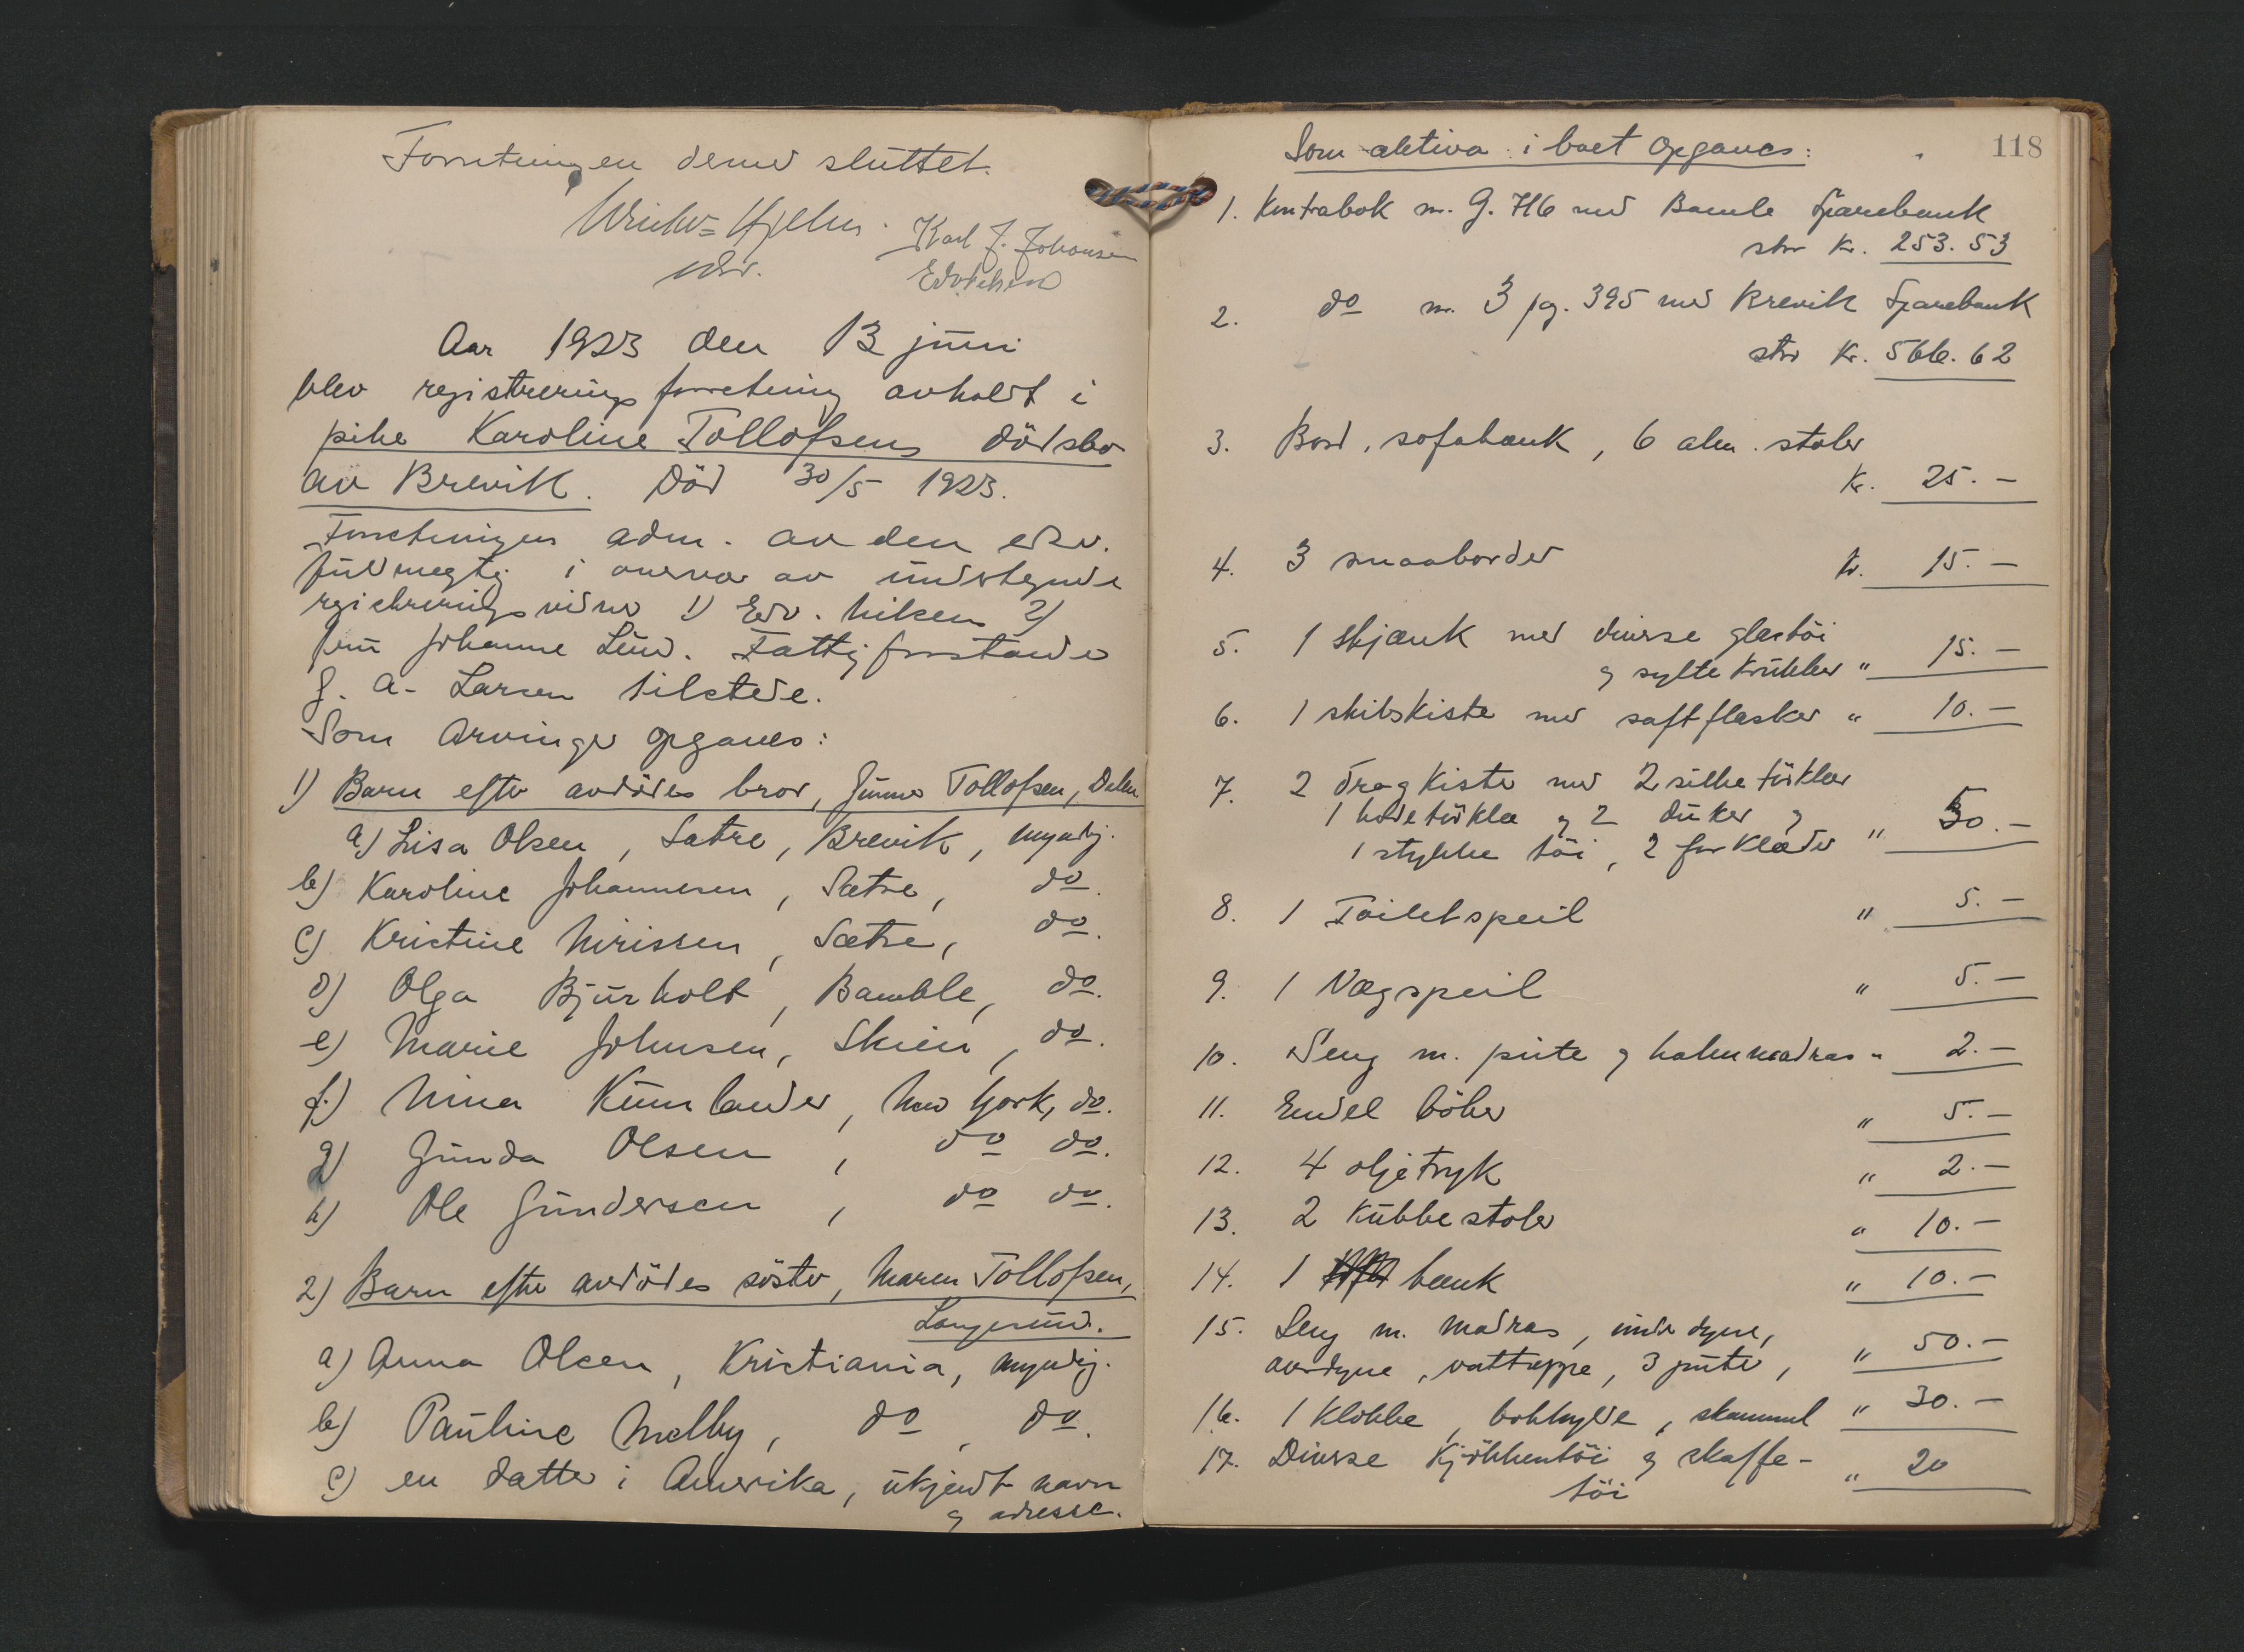 Forretningen dermed sluttet.
Karl J. Johansen
Aar 1923 den 13 juni
blev registreringsforretning avholdt i
pike Karoline Tollofsens dödsbo
av Brevik. Död 30/5 1923.
Forretningen adm. av den edsv.
fuldmegtig i overvær av undertegnede
registreringsvidner 1) Edv. Nilsen 2)
fru Johanne Lund. Fattigforstander
J. A. Larsen tilstede.
Som arvinger opgaves:
1) Barn efter avdödes bror, Gunner Tollofsen,
a) Lisa Olsen, Satre, Brevik, myndig.
b) Karoline Johannesen, Sætre, do.
c) Kristine Nirissen, Sætre, do.
d) Olga Bjurholt, Bamble, do.
e) Marie Johnsen, Skien, do.
f.) Nina Kumlander, New York, do.
g) Gunda Olsen, do do.
h) Ole Gundersen, do do.
2) Barn efter avdödes söster, Maren Tollofsen,
Langesund.
a) Anna Olsen, Kristiania, myndig.
b) Pauline Melby, do, do.
c) en datter i Amerika, ukjendt navn
og adresse.
118
Som aktiva i boet opgaves:
1. Kontrabok nr. G. 716 med Bamle Sparebank
stor kr. 253.53
2. do nr. 3 pg. 395 med Brevik Sparebank
stor kr. 566.62
3. Bord, sofabænk, 6 alm. stoler
Kr. 25.–
4. 3 smaaborder kr. 15.–
5. 1 skjænk med diverse glastöi
og sylte krukker " 15.–
6. 1 skibskiste med saftflasker " 10.–
7. 2 dragkister med 2 silketörklær
1 hodetörklæ og 2 duker og
1 stykke töi, 2 forklæder " 50.–
8. 1 Toiletspeil " 5.–
9. 1 Vægspeil " 5.–
10. Seng m. pute og halmmadras " 2.–
11. Endel böker " 5.–
12. 4 oljetryk " 2.–
13. 2 kubbestoler " 10.–
14. 1 bænk " 10.–
15. Seng m. madras, underdyne,
overdyne, vatteppe, 3 puter, " 50.–
16. 1 Klokke, bokhylde, skammel " 30.–
17. Diverse kjökkentöi og skaffe-
töi " 20